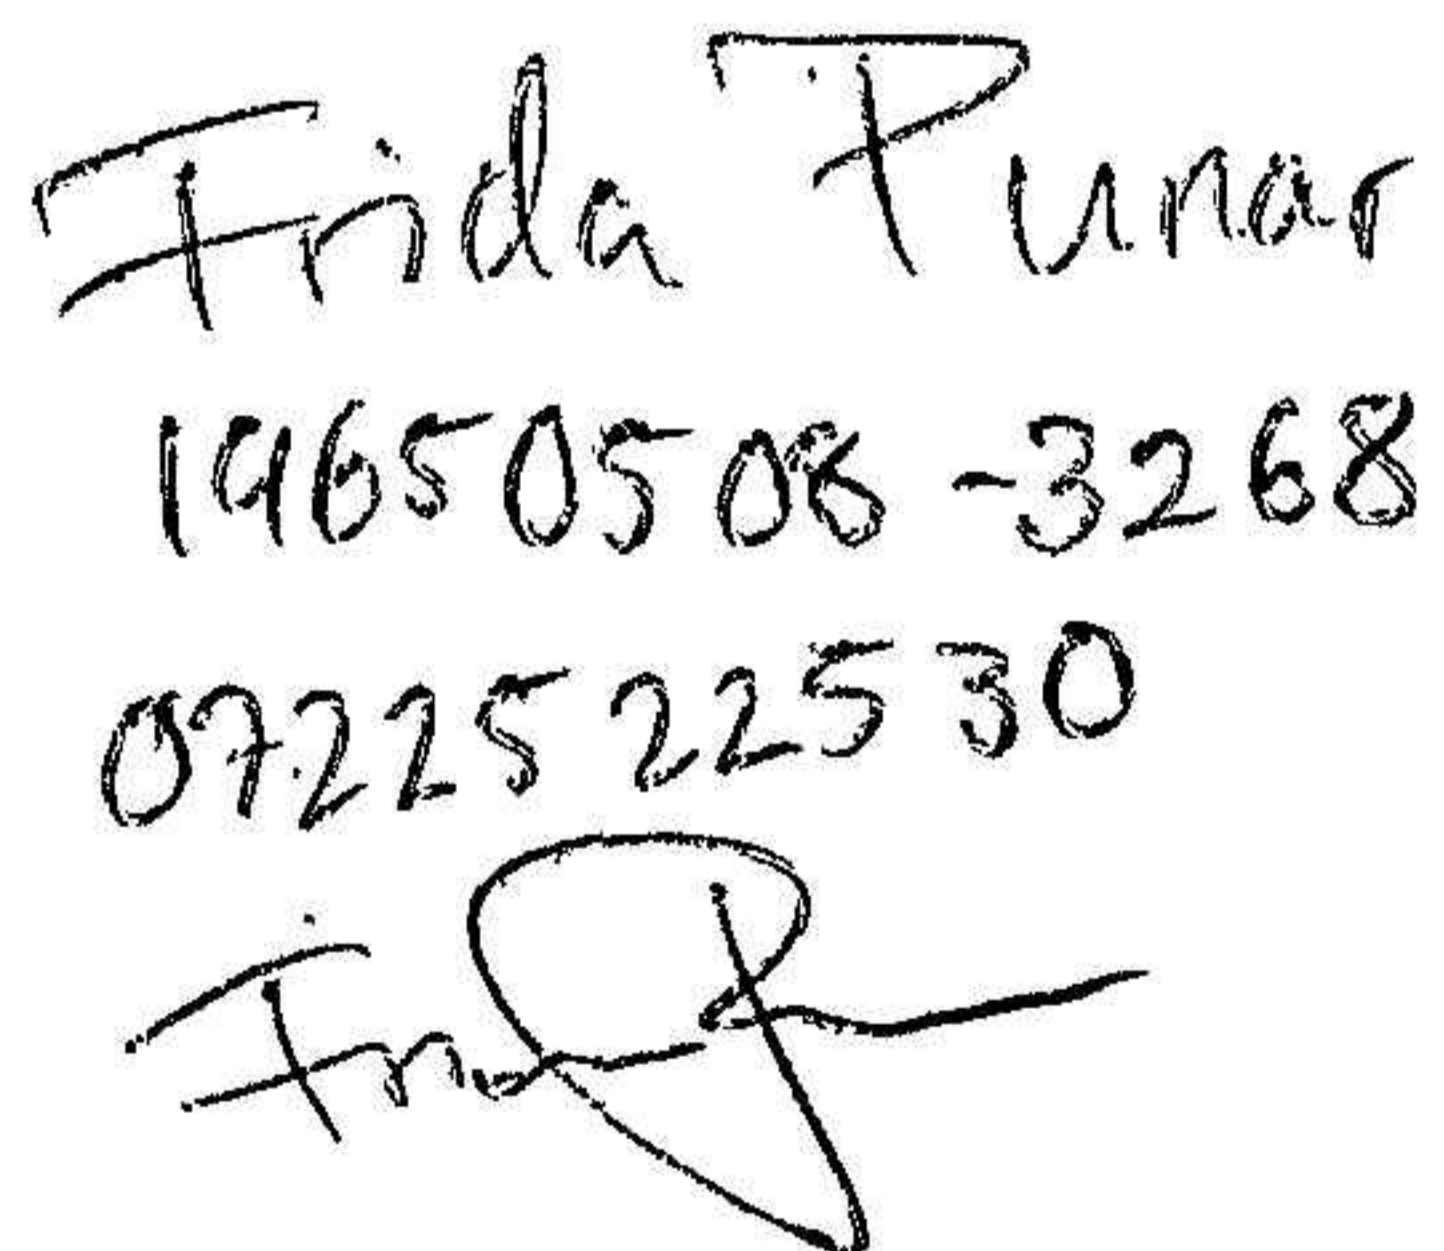 Frida Punar
19650508-3268
0722522530